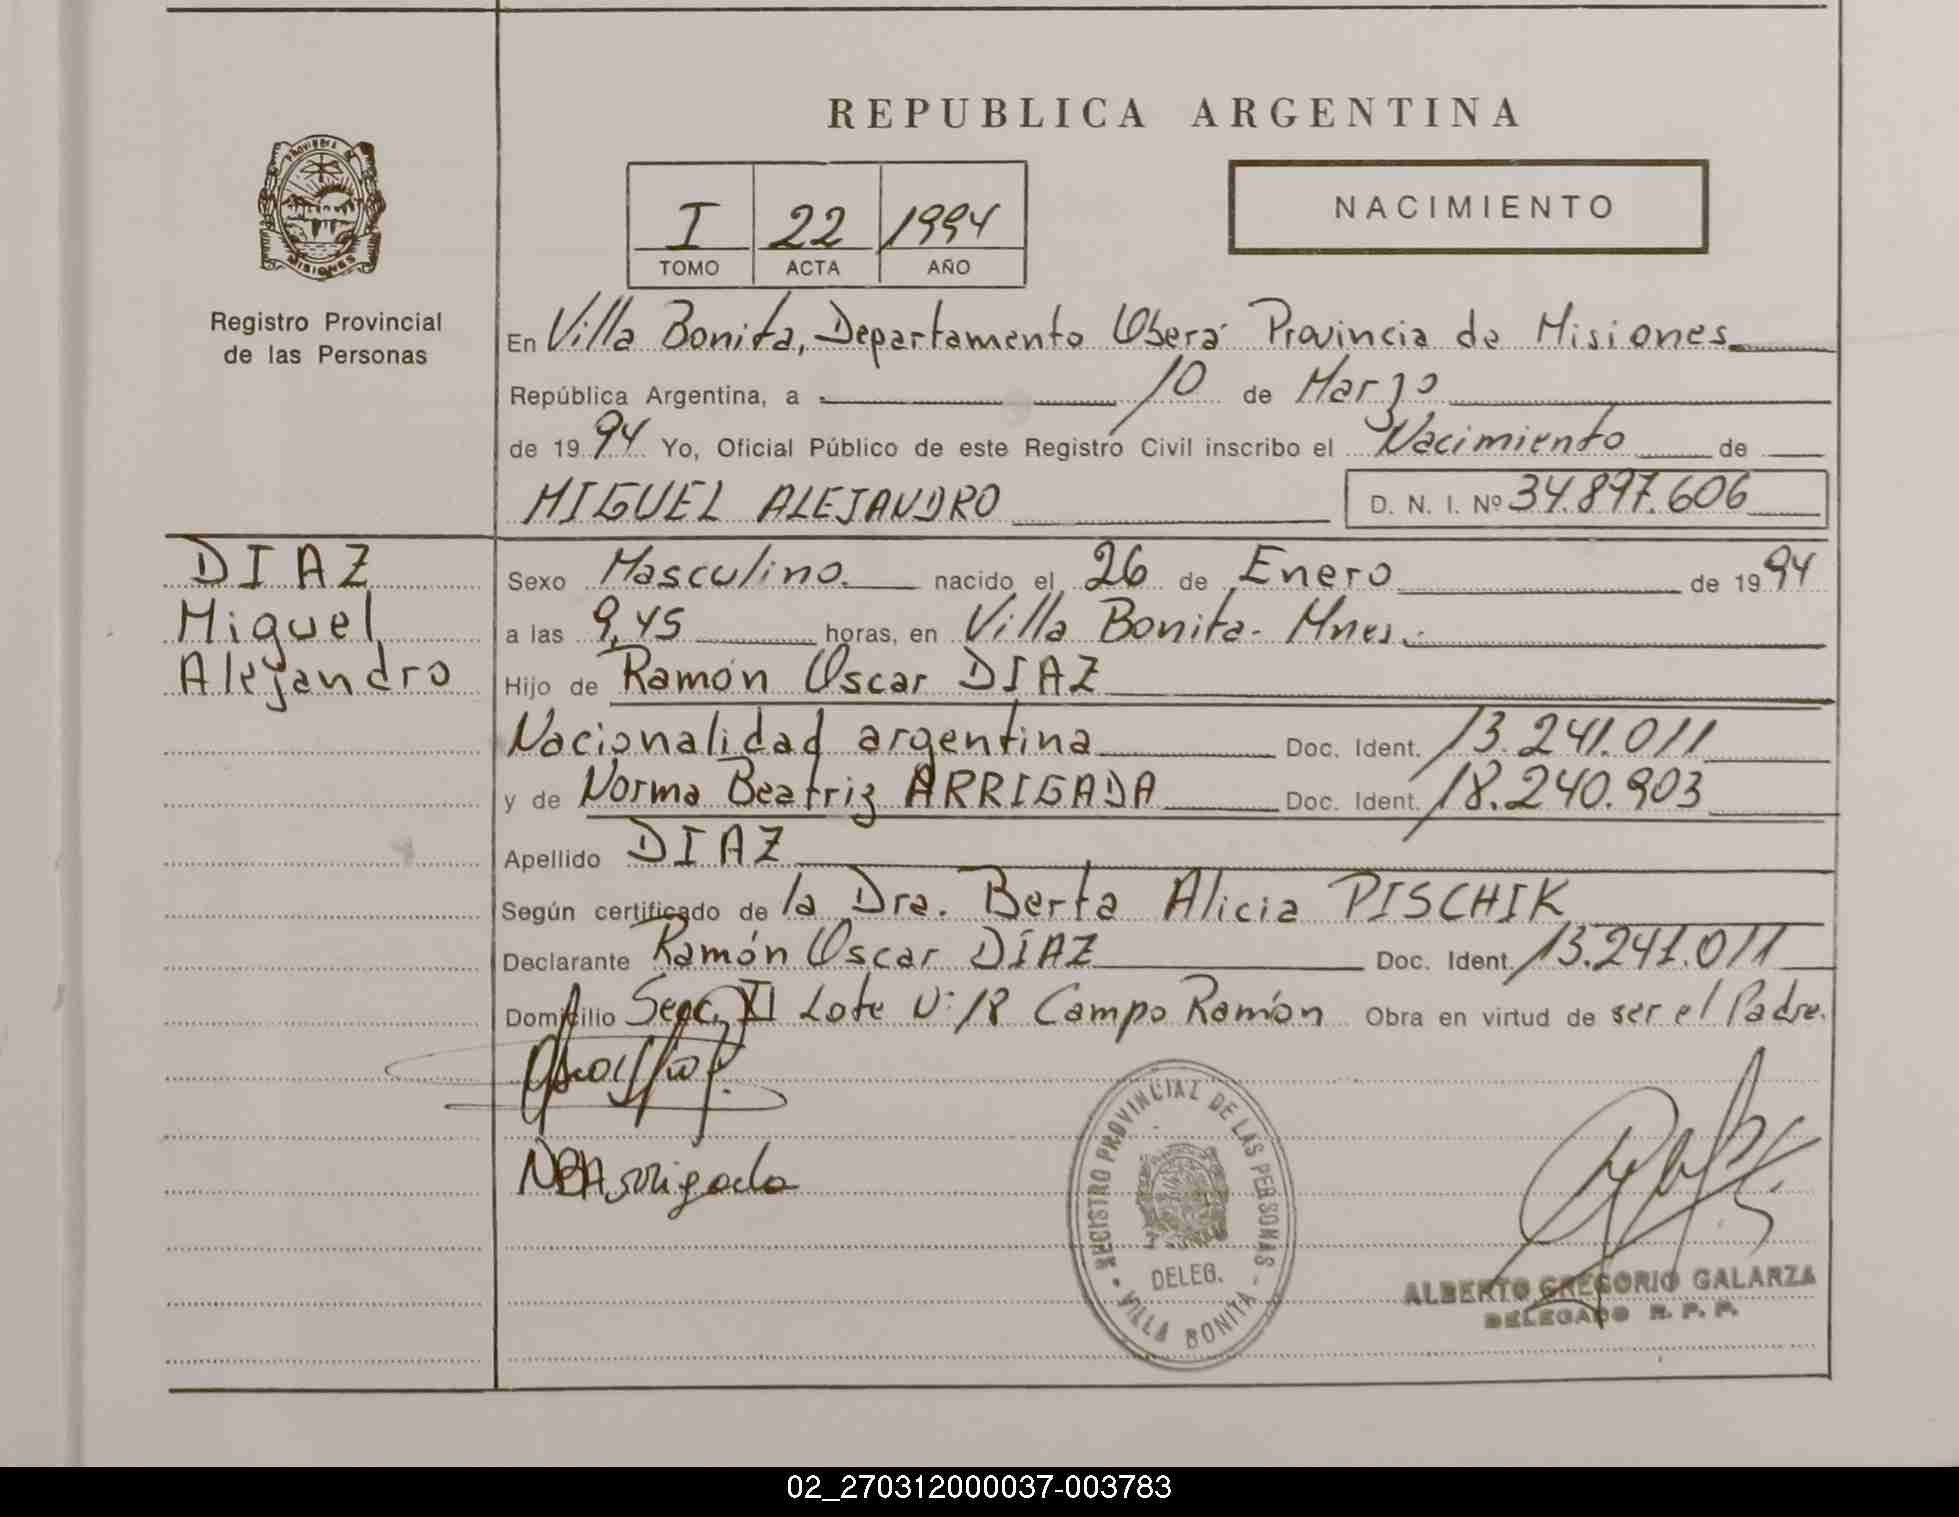 REPUBLICA ARGENTINA
PROVINCIA DE
MISIONES
Registro Provincial
de las Personas
I 22 1994
TOMO ACTA AÑO
NACIMIENTO
En Villa Bonita, Departamento Oberá Provincia de Misiones
República Argentina, a 10 de Marzo
de 1994 Yo, Oficial Público de este Registro Civil inscribo el Nacimiento de
MIGUEL ALEJANDRO D. N. I. Nº 34.897.606
DIAZ
Miguel
Alejandro
Sexo Masculino. nacido el 26 de Enero de 1994
a las 9,45 horas, en Villa Bonita - Mnes.
Hijo de Ramón Oscar DIAZ
Nacionalidad argentina Doc. Ident. 13.241.011
y de Norma Beatriz ARRIGADA Doc. Ident. 18.240.903
Apellido DIAZ
Según certificado de la Dra. Berta Alicia PISCHIK
Declarante Ramón Oscar DÍAZ Doc. Ident. 13.241.011
Domicilio Secc. XI Lote Nº 18 Campo Ramón Obra en virtud de ser el Padre.
NBArrigada
REGISTRO PROVINCIAL DE LAS PERSONAS
DELEG.
- VILLA BONITA -
ALBERTO GREGORIO GALARZA
DELEGADO R. P. P.
02_270312000037-003783